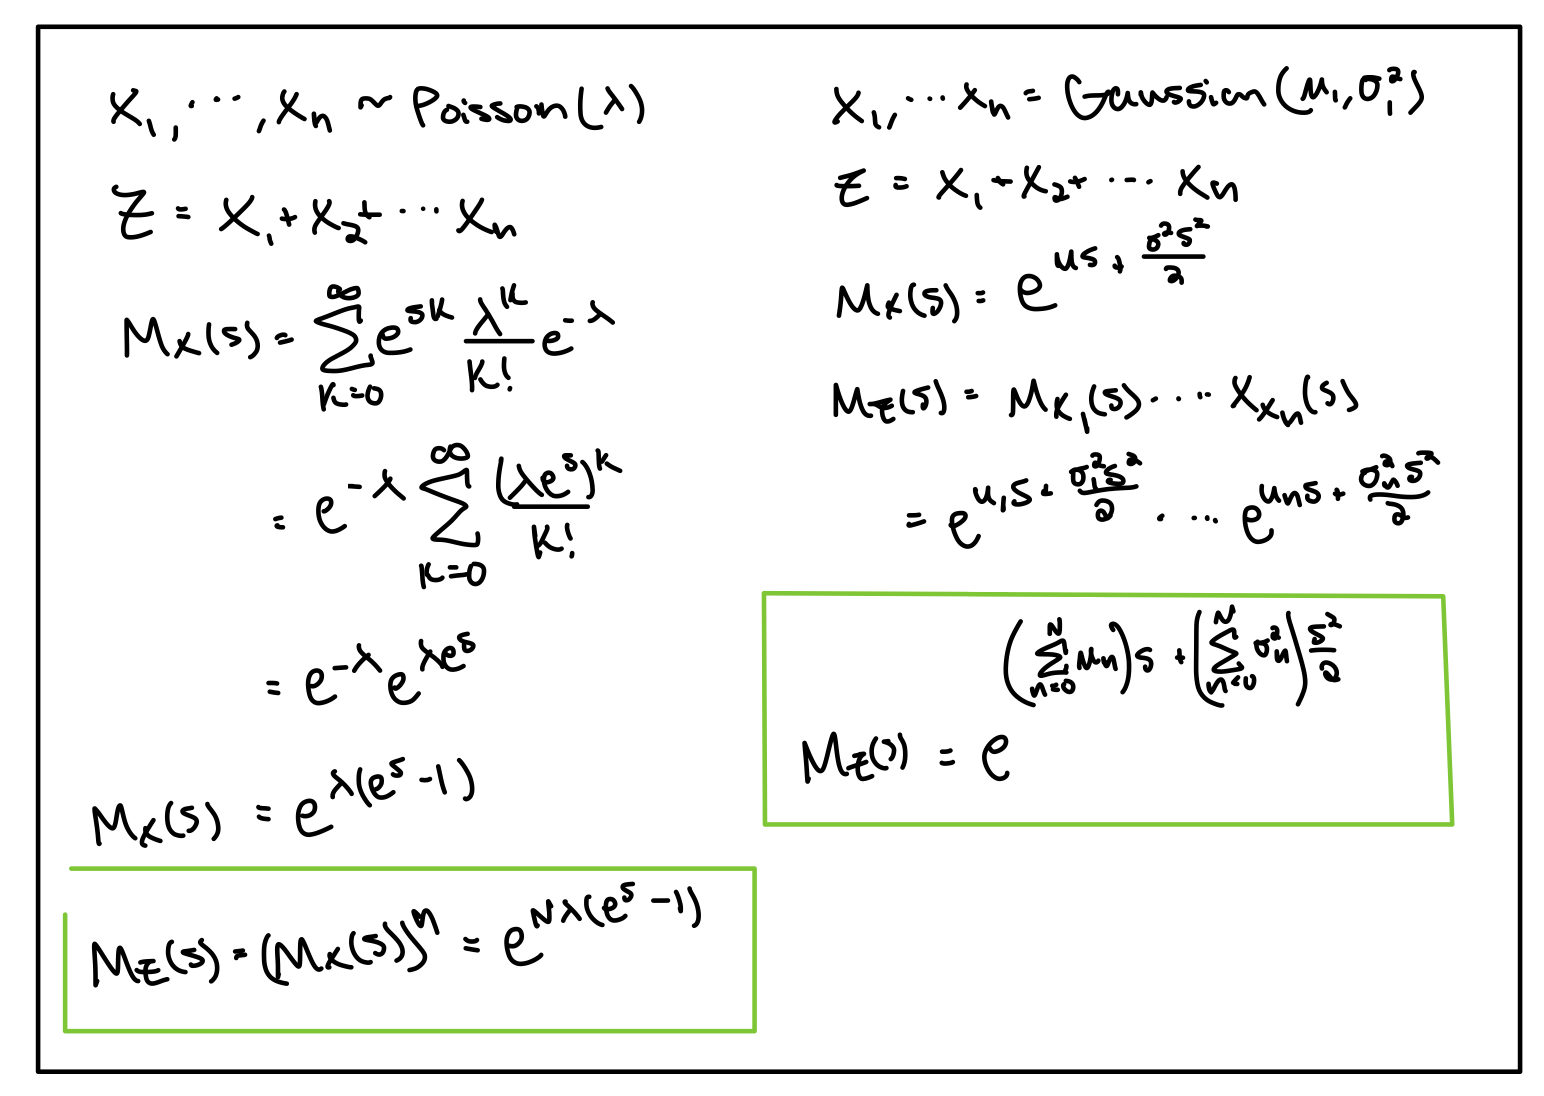 X₁, ⋯, Xₙ ~ Poisson(λ)
Z = X₁ + X₂ + ⋯ Xₙ
Mₓ(s) = ∑_{K=0}^{∞} e^{sK} λ^K/K! e^{-λ}
= e^{-λ} ∑_{K=0}^{∞} (λe^s)^K/K!
= e^{-λ} e^{λe^s}
Mₓ(s) = e^{λ(e^s -1)}
M_Z(s) = (Mₓ(s))^n = e^{Nλ(e^s -1)}
X₁, ⋯ Xₙ = Gaussian(μ₁, σ₁²)
Z = X₁ + X₂ + ⋯ Xₙ
Mₓ(s) = e^{us + σ²s²/2}
M_Z(s) = M_{X₁}(s) ⋯ X_{Xₙ}(s)
= e^{u₁s + σ₁²s²/2} ⋯ e^{uₙs + σₙ²s²/2}
M_Z() = e^{(∑_{n=0}^{N} μₙ)s + (∑_{n=0}^{N} σₙ²) s²/2}